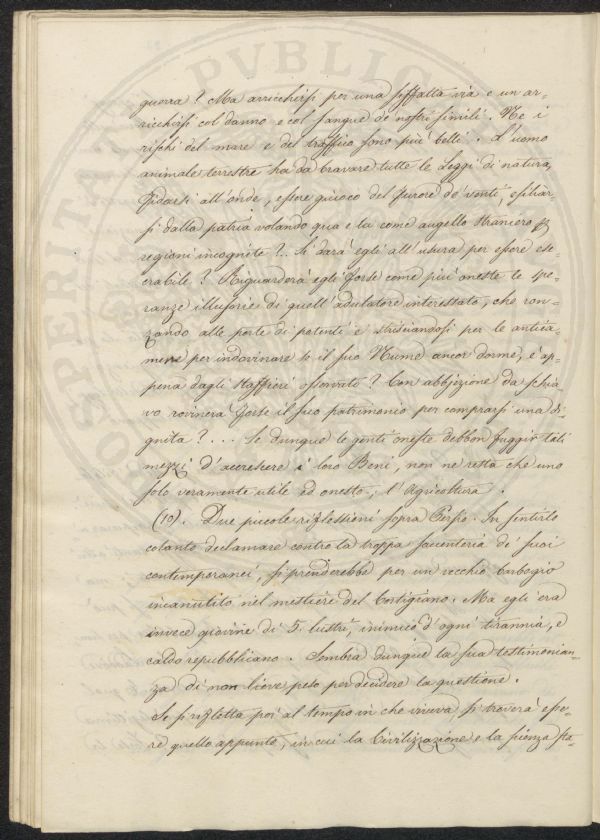 guerra? Ma arricchirsi per una siffatta via e un ar-
ricchirsi col danno e col sangue de' nostri simili. Ne i
rischi del mare e del traffico sono più belli. L'uomo
animale terrestre ha da bravare tutte le Leggi di natura,
fidarsi all'onde, essere giuoco del furore de' venti, esiliar-
si dalla patria volando qua e la come augello straniero p
regioni incognite?.. Si darà egli all'usura per essere ese-
crabile? Riguarderà egli forse come più oneste le spe-
ranze illusorie di quell'adulatore interessato, che ron-
zando alle porte di potenti e strisciandosi per le antica-
mere per indovinare se il suo Nume ancor dorme, è ap-
pena dagli staffieri osservato? Con abbjezione da schia-
vo rovinerà forse il suo patrimonio per comprarsi una di-
gnità?... Se dunque le genti oneste debbon fuggir tali
mezzi d'accrescere i loro Beni, non ne resta che uno
solo veramente utile ed onesto, l'Agricoltura.
(10). Due piccole riflessioni sopra Persio. In sentirlo
cotanto declamare contro la troppa saccenteria de' suoi
contemporanei, si prenderebbe per un vecchio barbogio
incanutito nel mestiere del Cortigiano. Ma egli era
invece giovine di 5. lustri, inimico d'ogni tirannia, e
caldo repubbliano. Sembra dunque la sua testimonian-
za di non lieve peso per decidere la questione.
Se si rifletta poi al tempo in che viveva, si troverà esse-
re quello appunto, in cui la Civilizzazione e la sienza sta-
PVBLIC
PROSPERITAT